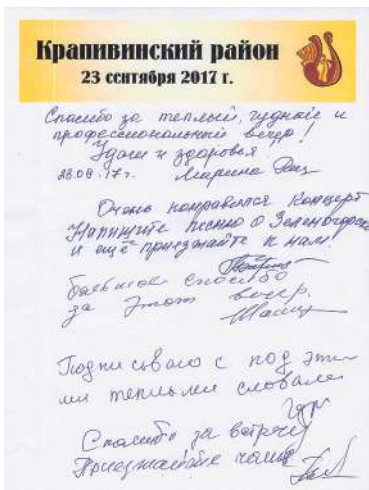 Крапивинский район
23 сентября 2017 г.
Спасибо за теплый, чудный и
профессиональный вечер!
Удачи и здоровья.
23.09.17г. Марина
Очень понравился концерт
Напишите песню о Зеленогорске
и ещё приезжайте к нам!
Большое спасибо
за этот вечер.
Подписываюсь под эти-
ми теплыми словами
Спасибо за встречу
Приезжайте чаще